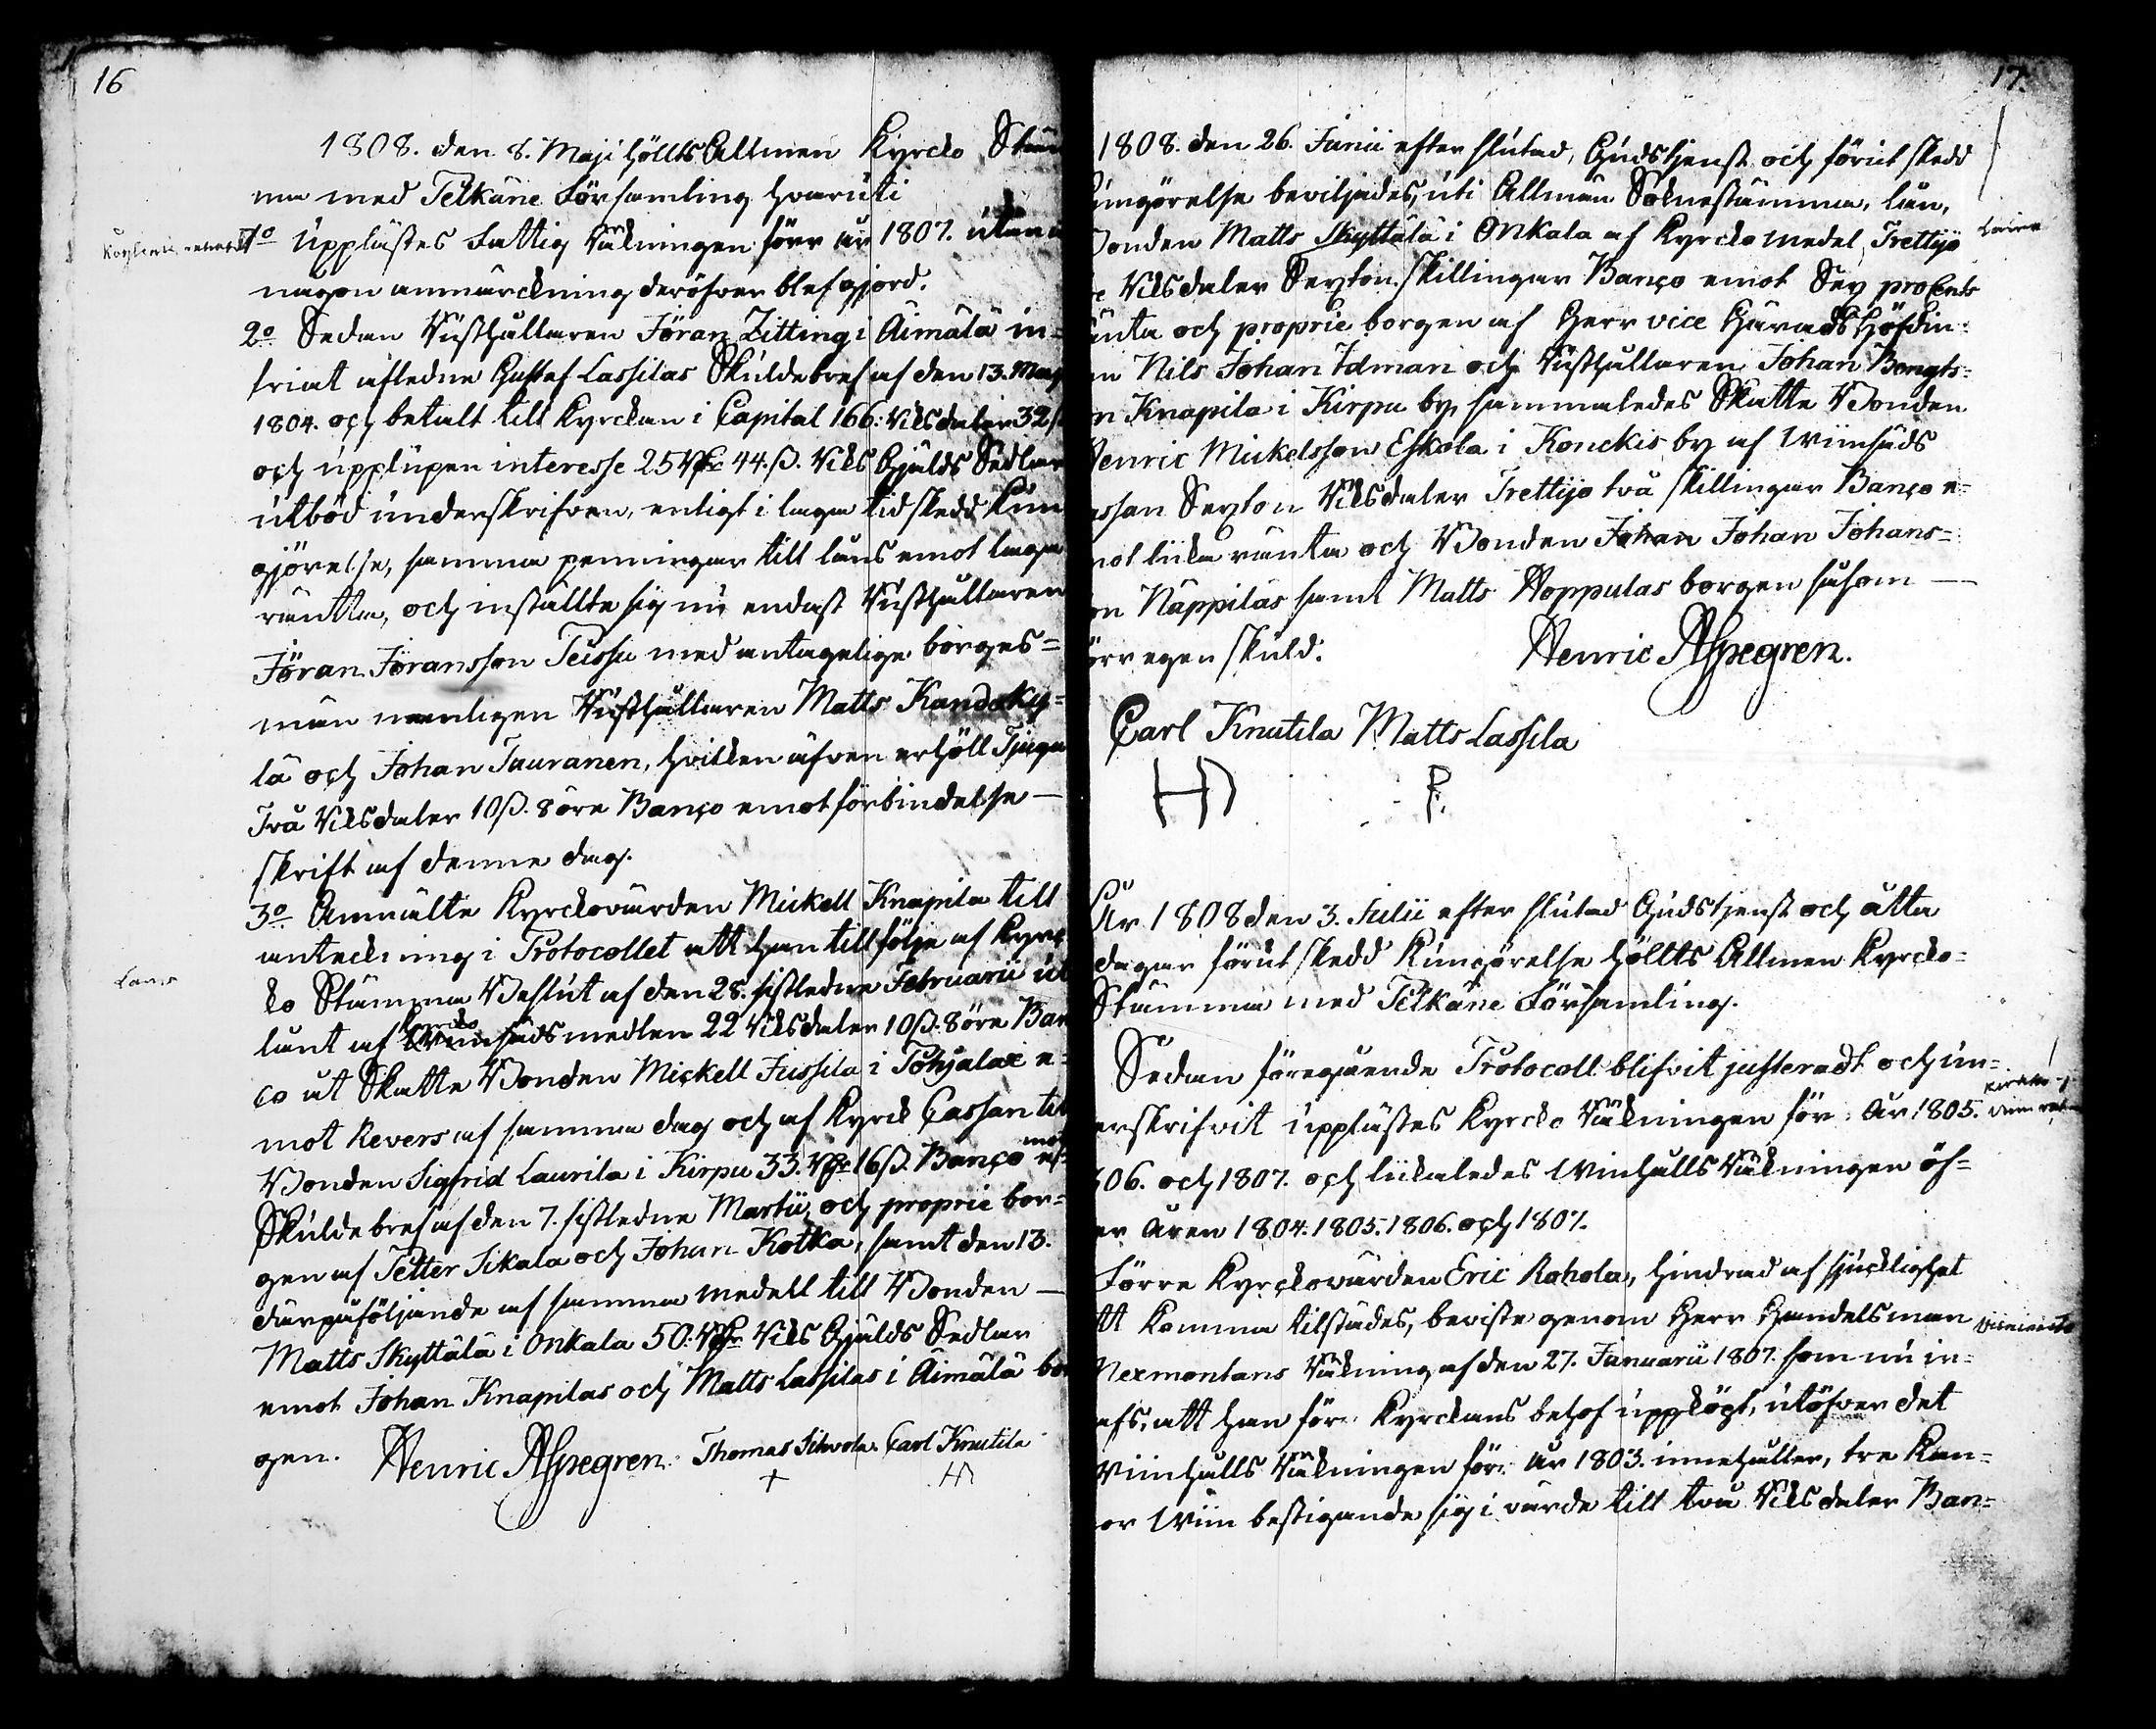 16
1808. den 8. Maji höllts Allmen Kyrcko Stäm
ma med Pelkäne Församling hvaruti
1o Upplästes Fattig Räkningen förr år 1807. utan
någon anmärckning deröfver blef gjord.
2o Sedan Rusthållaren Jöran Zitting i Äimälä in=
friat afledne Gustaf Lassilas Skuldebref af den 13. Maji
1804. och betalt till Kyrckan i Capital 166: Riksdaler 32 s
och upplupen interesse 25 Rdr 44. ß. Riks Gjälds Sedlar
utböd underskrifven, enligt i laga tid skedd Kun
gjörelse, samma penningar till låns emot laga
räntta, och inställte sig nu endast Rusthållaren
Jöran Jöransson Teissa med antagelige borges=
män nemligen Rusthållaren Matts Kandoky=
lä och Johan Tauranen, hvilken äfven erhöll Tjugu
Två Riksdaler 10 ß. 8 öre Banco emot förbindelse —
skrift af denne dag.
3o Anmälte Kyrckovärden Mickell Knapila till
anteckning i Protocollet att han till följe af Kyrc
Lains
ko Stämma Beslut af den 28. sistledne Februarii ut
lånt af Kyrcko medlen 22 Riksdaler 10 ß. 8 öre Ban
co åt Skatte Bonden Mickell Jussila i Pohjalax e=
mot Revers af samma dag och af Kyrck Cassan till
Bonden Sigfrid Laurila i Kirpu 33. Rdr 16 ß. Banco mot
Skuldebref af den 7. sistledne Martii, och proprie bor=
gen af Petter Sikala och Johan Kotka, samt den 13.
därpåföljande af samma medell till Bonden —
Matts Skyttälä i Onkala 50. Rdr Riks Gjälds Sedlar
emot Johan Knapilas och Matts Lassilas i Äimälä bor
gen. Henric Aspegren. Thomas Carl Knutila
17.
1808. den 26. Junii efter slutad, Gudstjenst och förut skedd
ungörelse beviljades, uti Allmän Sockne stämma, lån,
Bonden Matts Skyttälä i Onkala af Kyrcko medel, Trettijo
Riksdaler Sexton skillingar Banco emot Sex pro Cents
änta och proprie borgen af Herr vice Härads Höfdin=
en Nils Johan Idman och Rusthållaren Johan Bengts=
on Knapila i Kirpu by, sammaledes Skatte Bonden
Henric Mickelsson Eskola i Konckis by af Winsäds
assan Sexton Riksdaler Trettijo två skillingar Banco e=
mot lika ränta och Bonden Johan Johan Johans=
on Näppiläs samt Matts Hoppulas borgen såsom —
örr egen skuld. Henric Aspegren.
Carl Knutila Matts Lassila
År 1808 den 3. Julii efter slutad Gudstjenst och åtta
dagar förut skedd Kungörelse höllts Allmen Kyrcko=
Stämma med Pelkäne Församling.
Sedan föregående Protocoll blifvit justeradt och un=
erskrifvit upplästes Kyrcko Räkningen för År 1805.
806. och 1807. och likaledes Winhålls Räkningen öf=
er Åren 1804. 1805. 1806. och 1807.
Förre Kyrckovärden Eric Rohola, hindrad af sjucklighet
tt komma tilstädes, beviste genom Herr Handelsman
Nexmontans Räkning af den 27. Januarii 1807. som nu in=
afs, att han för Kyrckans behof uppköpt, utöfver det
Winhålls Räkningen för år 1803. innehåller, tre Kan=
or Win bestigande sig i värde till två Riksdaler Ban=